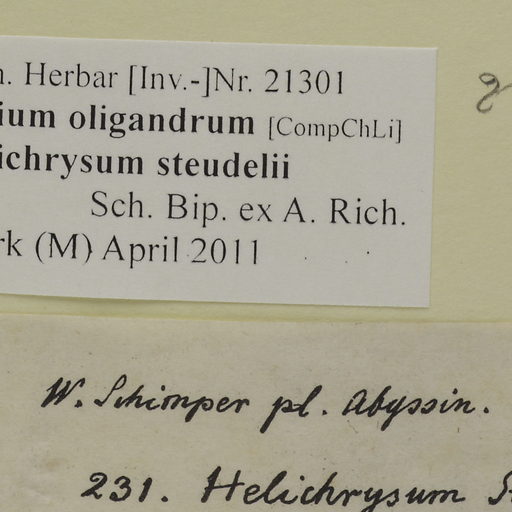 n. Herbar [Inv.-]Nr. 21301
ium oligandrum [CompChLi]
ichrysum steudelii
Sch. Bip. ex A. Rich.
rk (M) April 2011
W. Schimper pl. Abyssin.
231. Helichrysum